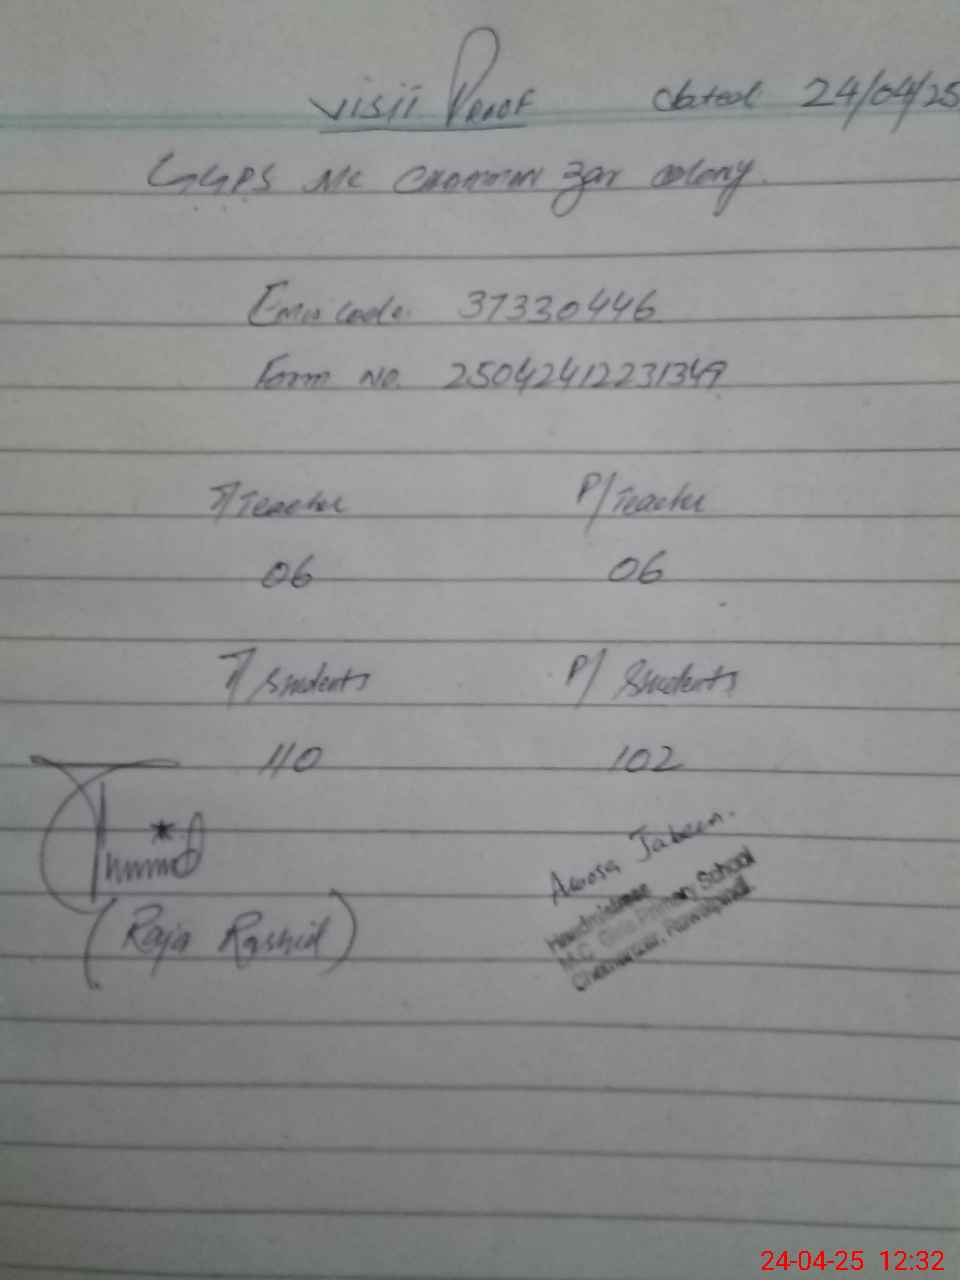 Visit Proof dated 24/04/25
GGPS MC Chamman Zar colony.
Emis code. 37330446
Form No. 25042412231349
T/Teacher P/Teacher
06 06
T/Students P/Students
110 102
(Raja Rashid)
Jabeen.
Headmistress
M.C. Girls Primary School
Rawalpindi
24-04-25 12:32